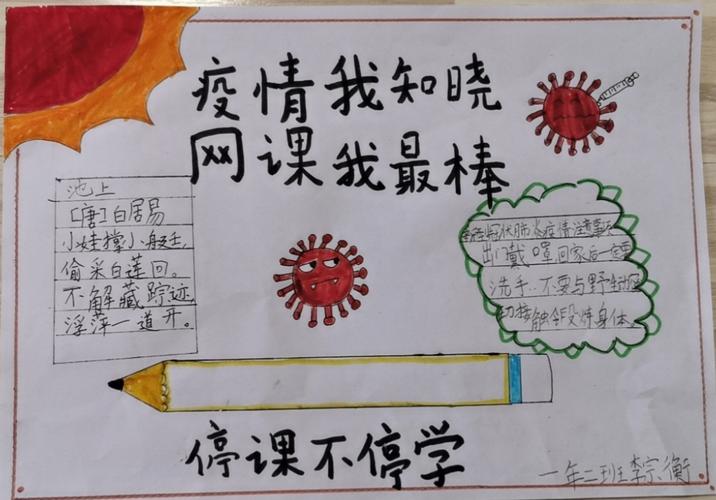 疫情我知晓
网课我最棒
池上
[唐]白居易
小娃撑小艇,
偷采白莲回。
不解藏踪迹,
浮萍一道开。
冠状肺炎疫情注意事
出门戴口罩回家后一定要
洗手..不要与野生动
接触 炼身体。
停课不停学
一年二班李宗衡